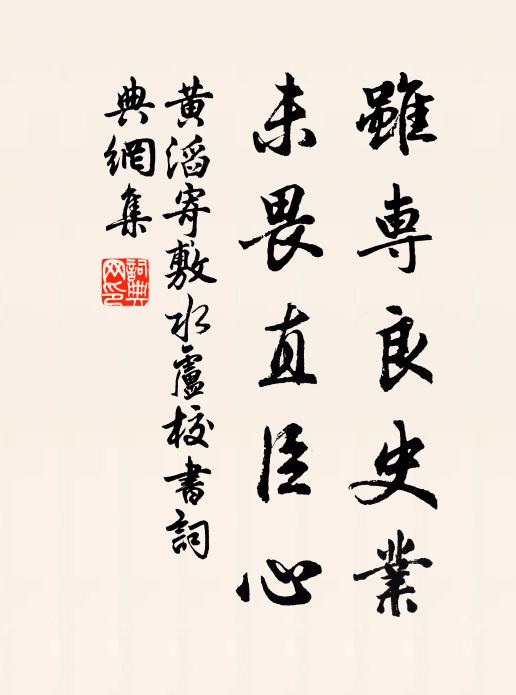 雖専良史業
未畏直臣心
黄滔寄敷水盧校書詞
典網集
詞典網印